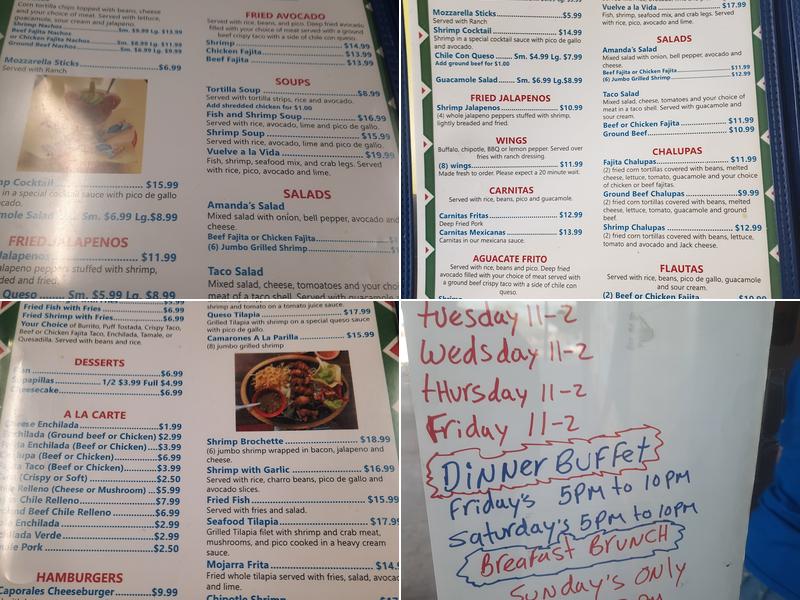 Corn tortilla chips topped with beans, cheese
and your choice of meat. Served with lettuce,
guacamole, sour cream and jalapeno.
Shrimp Nachos Sm. $9.99 Lg. $13.99
Beef Fajita Nachos
or Chicken Fajita Nachos Sm. $8.99 Lg. $11.99
Ground Beef Nachos Sm. $6.99 Lg. $9.99
Mozzarella Sticks $6.99
Served with Ranch
Cocktail $15.99
in a special cocktail sauce with pico de gallo
Salad Sm. $6.99 Lg.$8.99
FRIED JALAPENOS
Jalapenos $11.99
jalapeno peppers stuffed with shrimp,
and fried.
Queso Sm. $5.99 Lg. $8.99
FRIED AVOCADO
Served with rice, beans, and pico. Deep fried avocado
filled with your choice of meat served with a ground
beef crispy taco with a side of chile con queso.
Shrimp $14.99
Chicken Fajita $13.99
Beef Fajita $13.99
SOUPS
Tortilla Soup $8.99
Served with tortilla strips, rice and avocado.
Add shredded chicken for $1.00
Fish and Shrimp Soup $16.99
Served with rice, avocado, lime and pico de gallo.
Shrimp Soup $15.99
Served with rice, avocado, lime and pico de gallo.
Vuelve a la Vida $19.99
Fish, shrimp, seafood mix, and crab legs. Served
with rice, pico, avocado and lime.
SALADS
Amanda's Salad
Mixed salad with onion, bell pepper, avocado and
cheese.
Beef Fajita or Chicken Fajita
(6) Jumbo Grilled Shrimp
Taco Salad
Mixed salad, cheese, tomatoes and your
meat of a taco shell. Served with guacamole
Mozzarella Sticks $5.99
Served with Ranch
Shrimp Cocktail $14.99
Shrimp in a special cocktail sauce with pico de gallo
and avocado.
Chile Con Queso Sm. $4.99 Lg. $7.99
Add ground beef for $1.00
Guacamole Salad Sm. $6.99 Lg.$8.99
FRIED JALAPENOS
Shrimp Jalapenos $10.99
(4) whole jalapeno peppers stuffed with shrimp,
lightly breaded and fried.
WINGS
Buffalo, chipotle, BBQ or lemon pepper. Served over
fries with ranch dressing.
(8) wings $11.99
Made fresh to order. Please expect a 20 minute wait.
CARNITAS
Served with rice, beans, pico and guacamole.
Carnitas Fritas $12.99
Deep Fried Pork
Carnitas Mexicanas $13.99
Carnitas in our mexicana sauce.
AGUACATE FRITO
Served with rice, beans and pico. Deep fried
avocado filled with your choice of meat served with
a ground beef crispy taco with a side of chile con
queso.
Vuelve a la Vida $17.99
Fish, shrimp, seafood mix, and crab legs. Served with
rice, pico, avocado and lime.
SALADS
Amanda's Salad
Mixed salad with onion, bell pepper, avocado, and
cheese.
Beef Fajita or Chicken Fajita $11.99
(6) Jumbo Grilled Shrimp $12.99
Taco Salad
Mixed salad, cheese, tomatoes and your choice of
meat in a taco shell. Served with guacamole and
sour cream.
Beef or Chicken Fajita $11.99
Ground Beef $10.99
CHALUPAS
Fajita Chalupas $11.99
(2) fried corn tortillas covered with beans, melted
cheese, lettuce, tomato, guacamole and your choice
of chicken or beef fajitas.
Ground Beef Chalupas $9.99
(2) fried corn tortillas covered with beans, melted
cheese, lettuce, tomato, guacamole and ground
beef.
Shrimp Chalupas $12.99
(2) fried corn tortillas covered with beans, lettuce,
tomato and avocado and Jack cheese.
FLAUTAS
Served with rice, beans, pico de gallo, guacamole
and sour cream.
(2) Beef or Chicken Fajita
$6.99
Fried Fish with Fries $6.99
Fried Shrimp with Fries $6.99
Your Choice of Burrito, Puff Tostada, Crispy Taco,
Beef or Chicken Fajita Taco, Enchilada, Tamale, or
Quesadilla. Served with beans and rice.
DESSERTS
$6.99
Sopapillas 1/2 $3.99 Full $4.99
Cheesecake $6.99
A LA CARTE
Cheese Enchilada $1.99
Enchilada (Ground beef or Chicken) $2.99
Fajita Enchilada (Beef or Chicken) $3.99
Chalupa (Beef or Chicken) $6.99
Taco (Beef or Chicken) $3.99
(Crispy or Soft) $2.50
Relleno (Cheese or Mushroom) $5.99
Chile Relleno $7.99
Beef Chile Relleno $6.99
Enchilada $2.99
Verde $2.99
Pork $2.50
HAMBURGERS
Caporales Cheeseburger $9.99
shrimp and tomato on a tomato juice sauce.
Queso Tilapia $17.99
Grilled Tilapia with shrimp on a special queso sauce
with pico de gallo.
Camarones A La Parilla $15.99
(8) jumbo grilled shrimp
Shrimp Brochette $18.99
(6) jumbo shrimp wrapped in bacon, jalapeno and
cheese.
Shrimp with Garlic $16.99
Served with rice, charro beans, pico de gallo and
avocado slices.
Fried Fish $15.99
Served with fries and salad.
Seafood Tilapia $17.99
Grilled Tilapia filet with shrimp and crab meat,
mushrooms, and pico cooked in a heavy cream
sauce.
Mojarra Frita $14.
Fried whole tilapia served with fries, salad, avocado
and lime.
Chipotle Shrimp
tuesday 11-2
Wedsday 11-2
tHursday 11-2
Friday 11-2
DINNER BUFFet
Friday's 5PM to 10PM
Saturday's 5PM to 10PM
Breafast BRUNCH
Sunday's ONLY